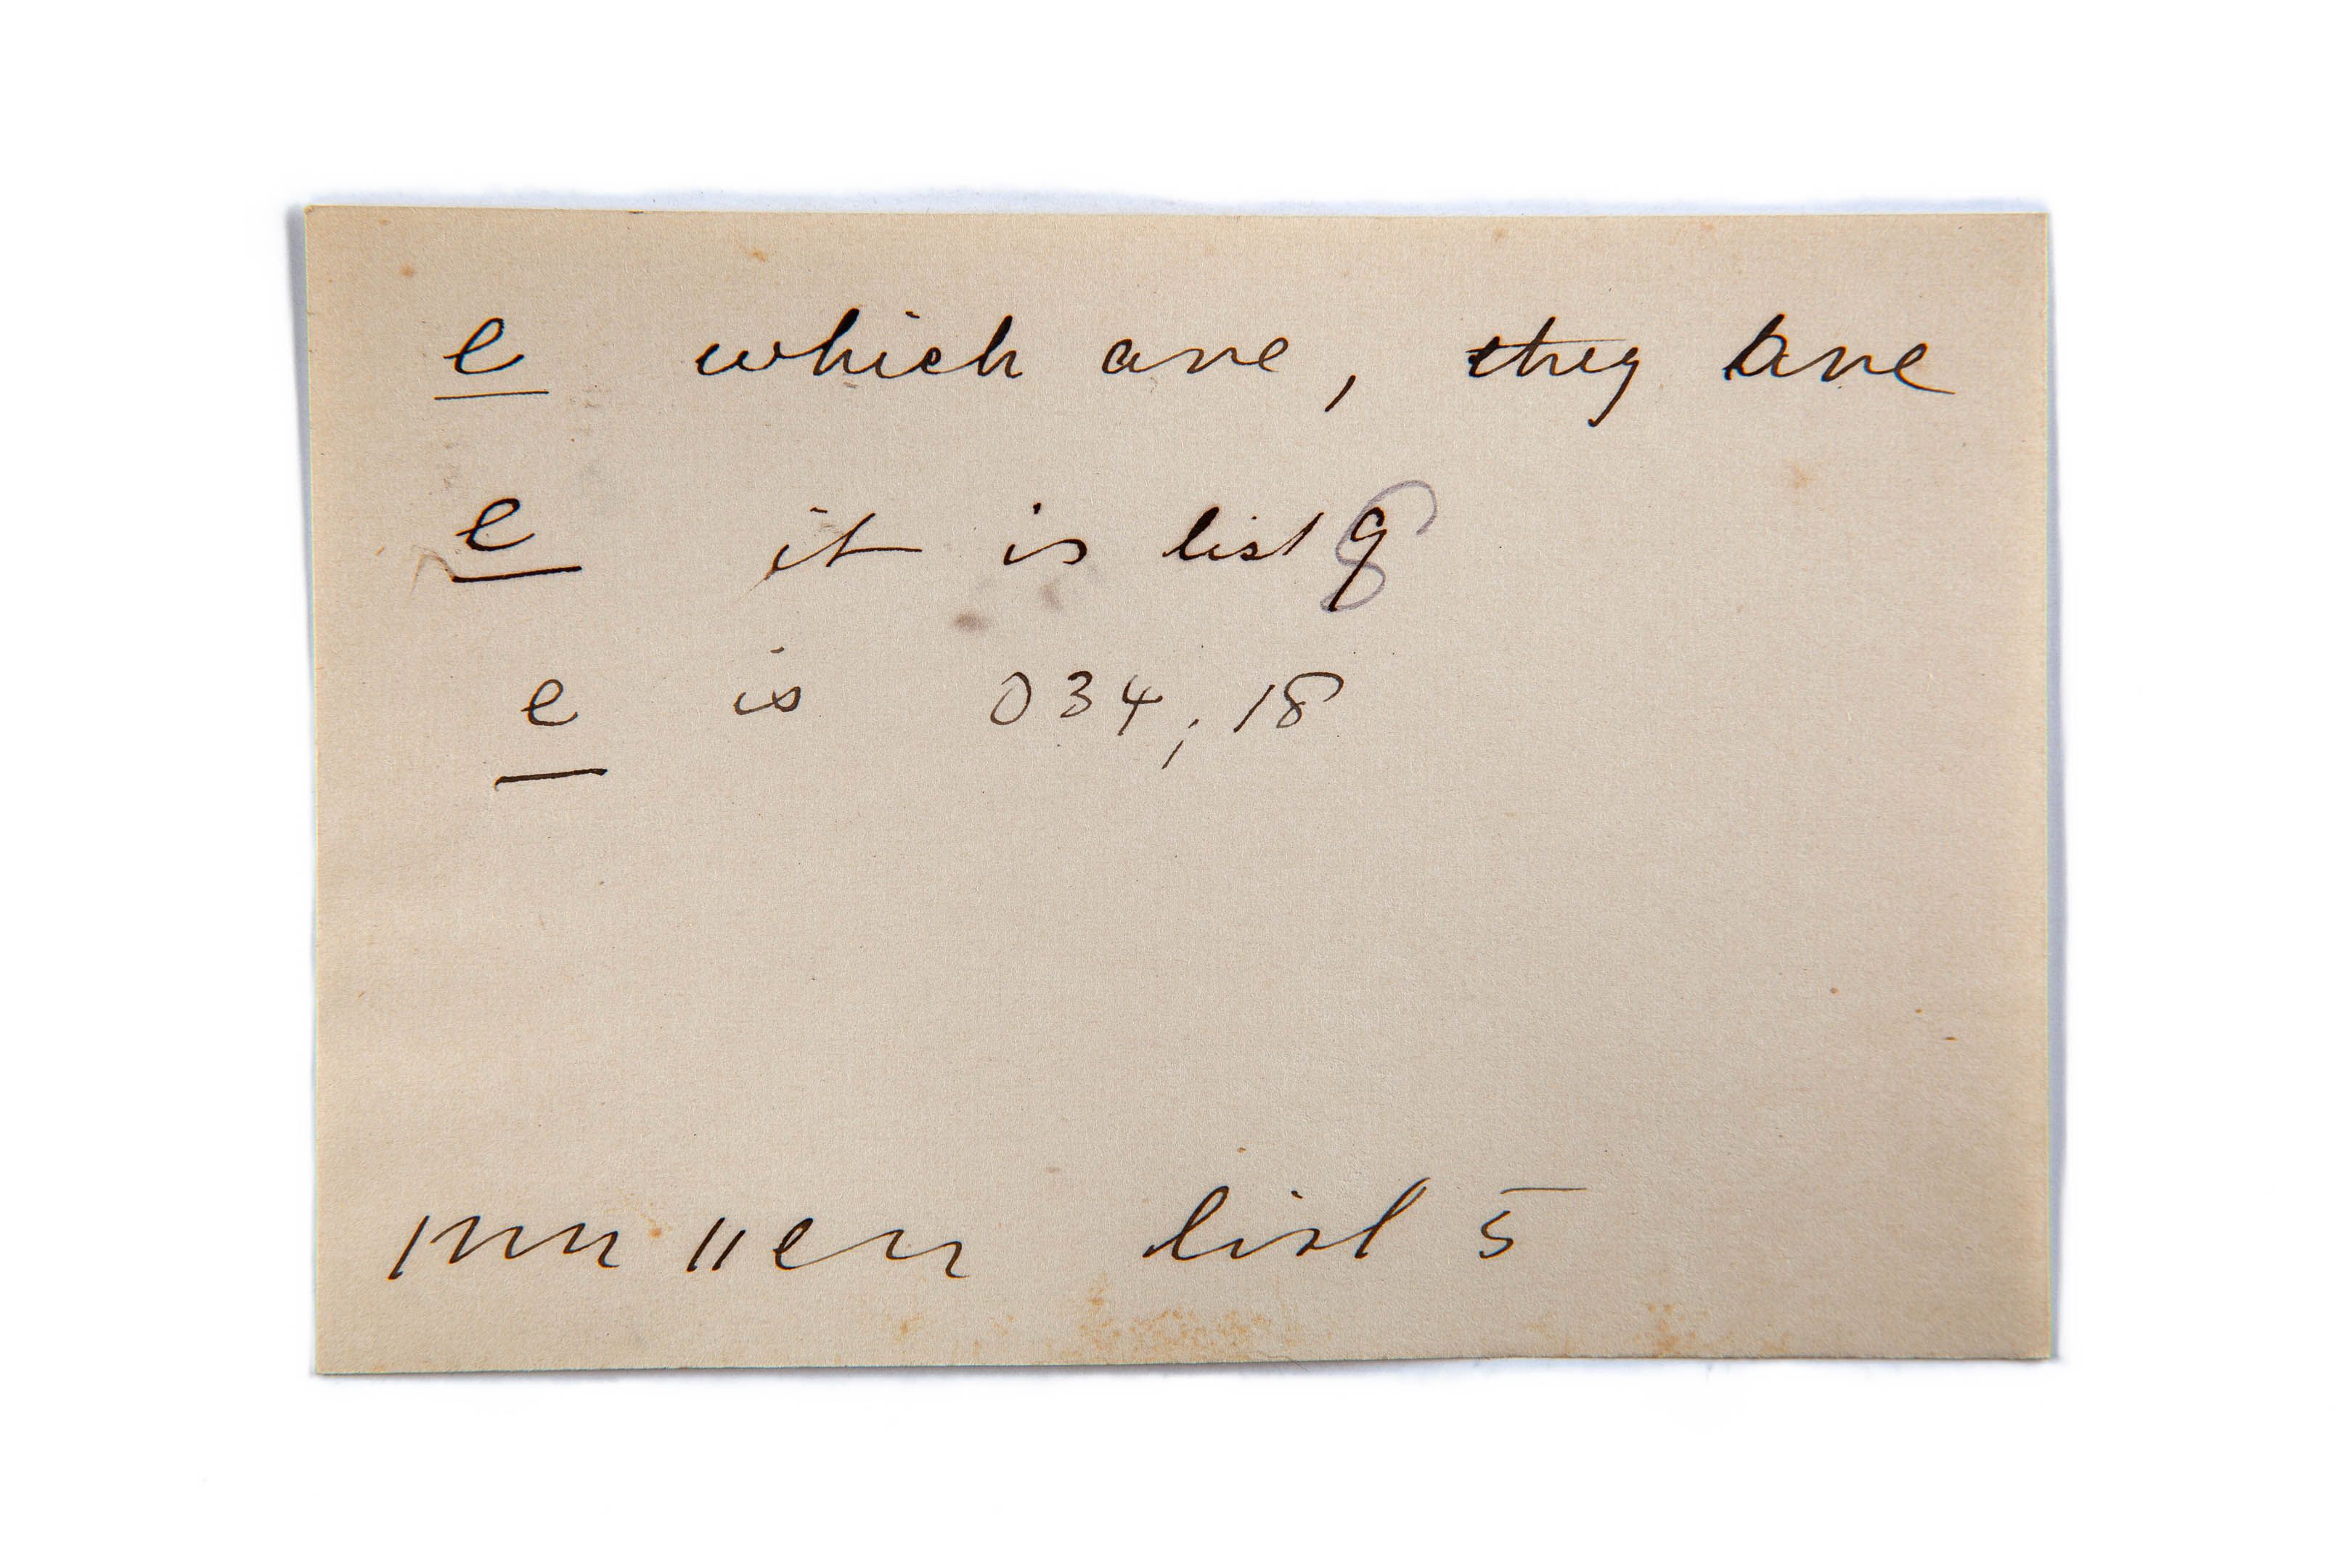 e which are, they are
e it is list 8
e is 034; 18
list 5